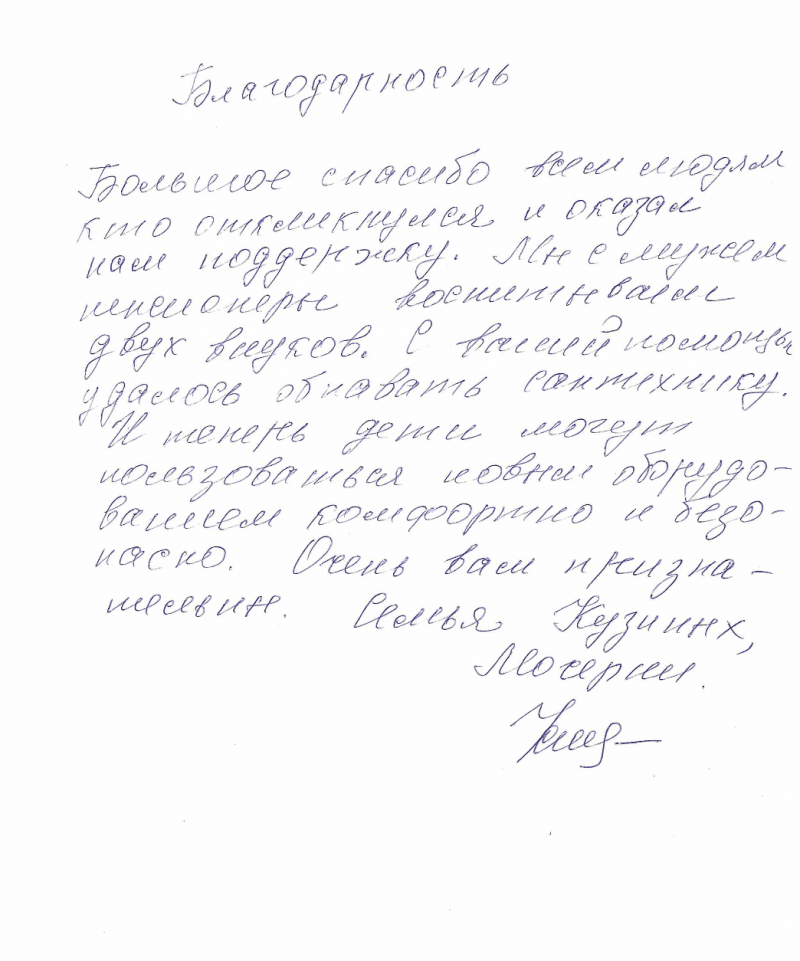 Благодарность
Большое спасибо всем людям
кто откликнулся и оказал
нам поддержку. Мы с мужем
пенсионеры воспитываем
двух внуков. С вашей помощью
удалось обнавать сантехнику.
И теперь дети могут
пользоваться новым оборудо-
ванием комфортно и безо-
пасно. Очень вам призна-
тельны. Семья Кузиных,